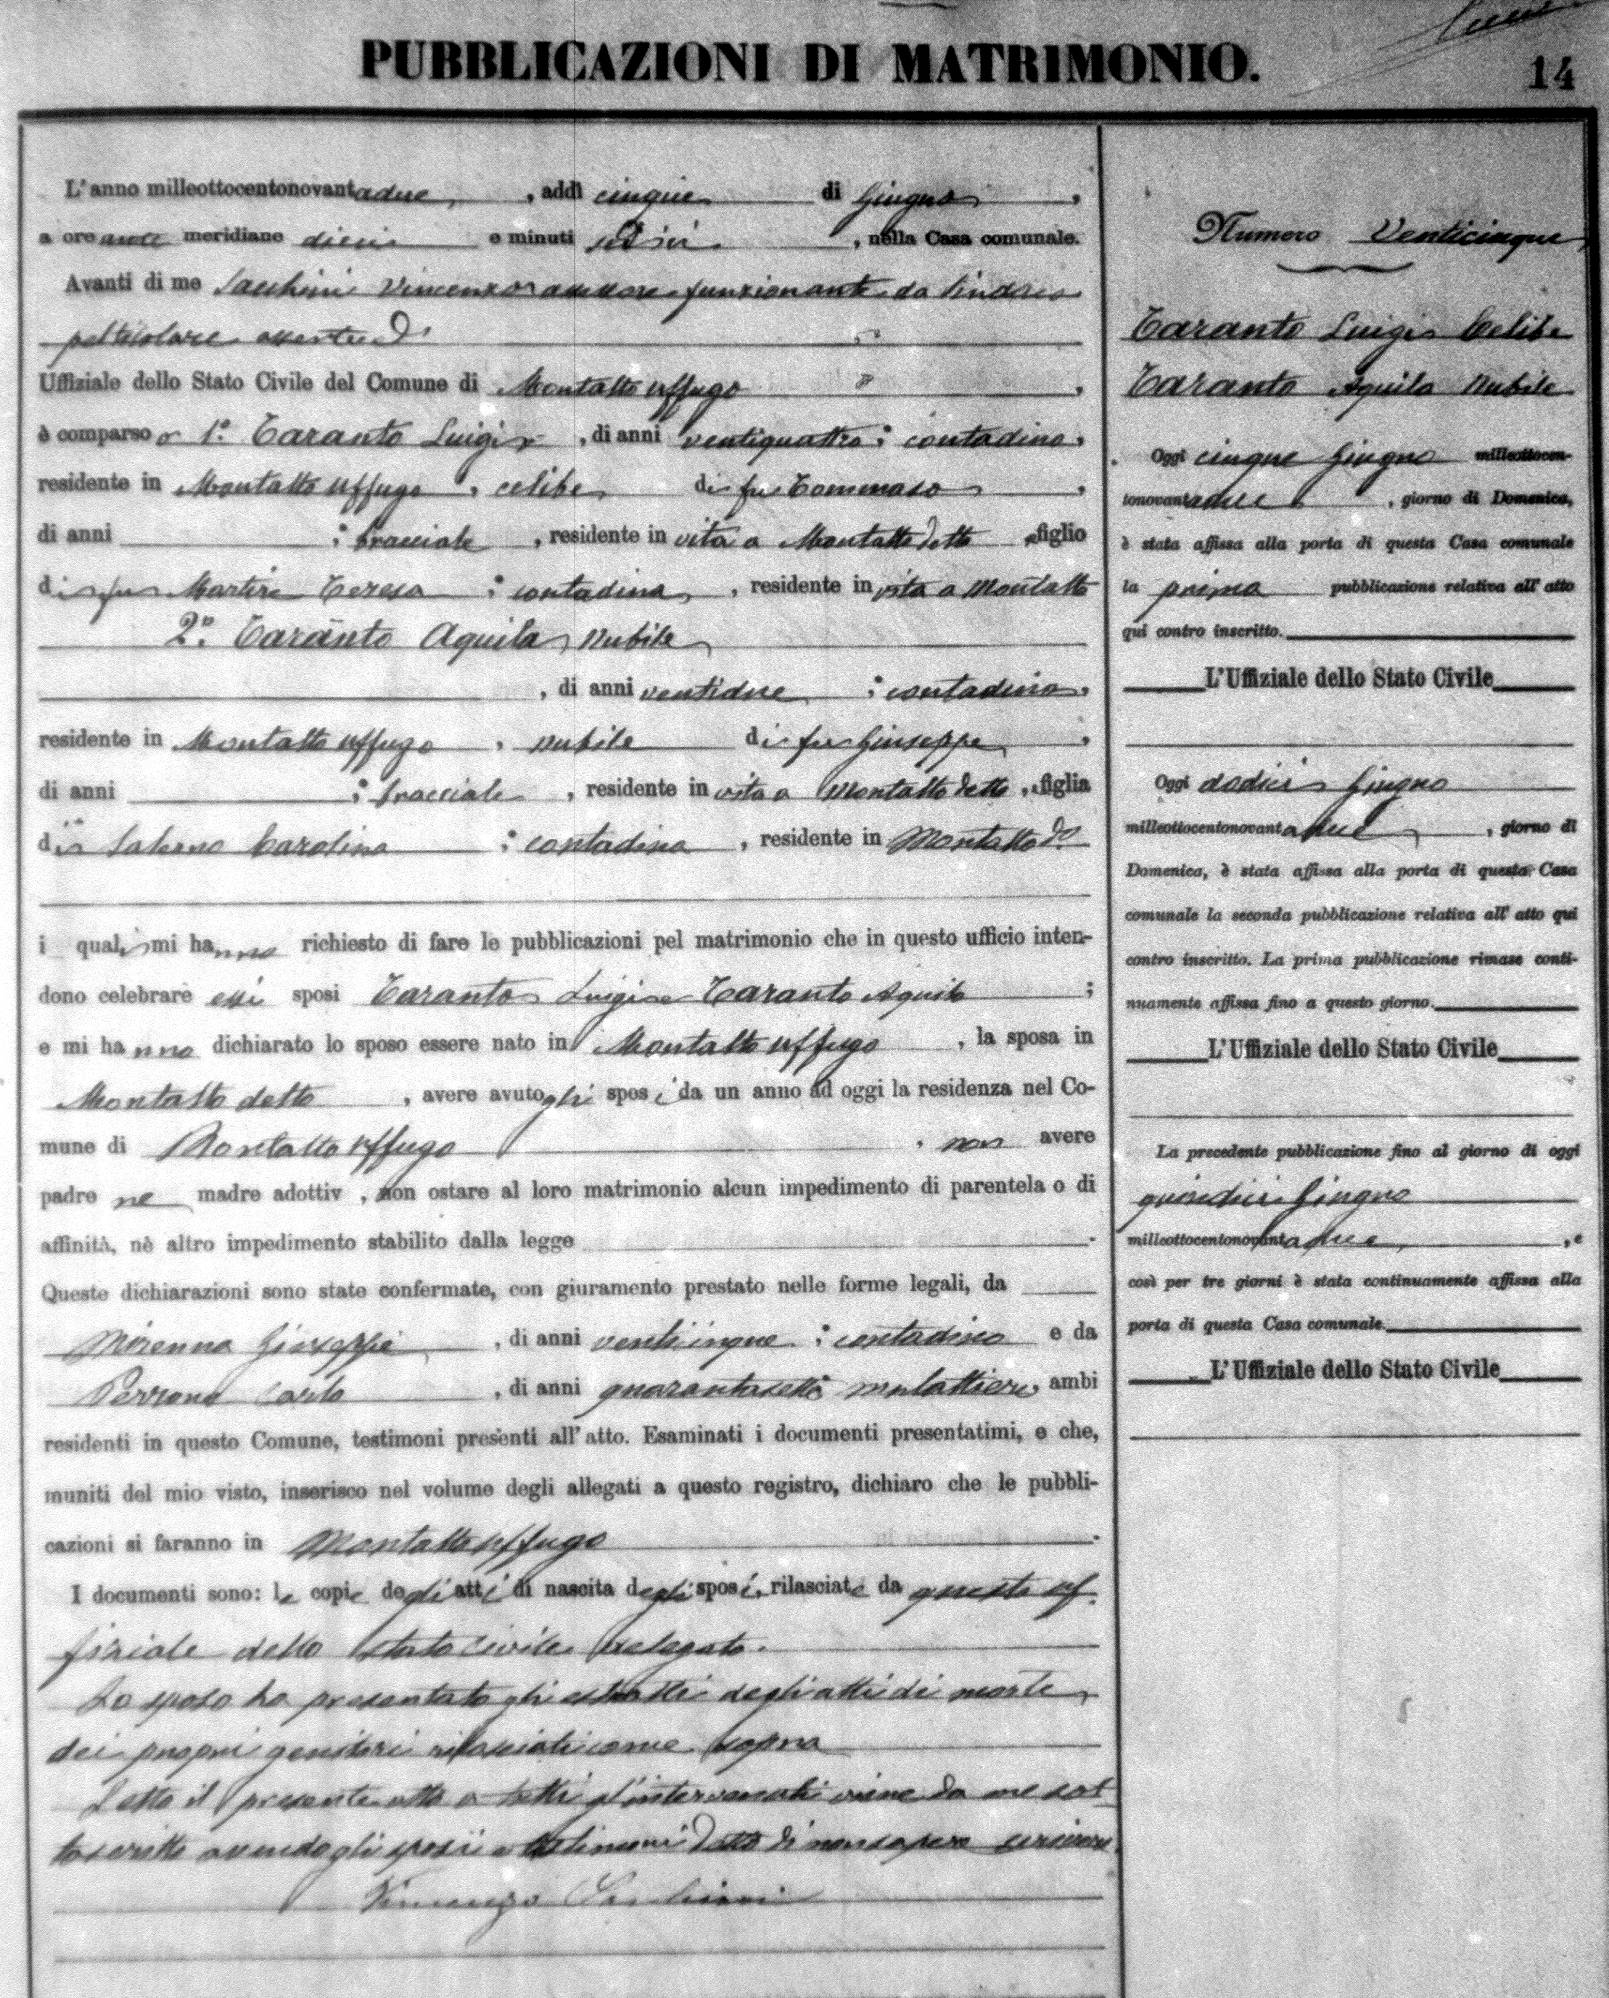 PUBBLICAZIONI DI MATRIMONIO.
14
L'anno milleottocentonovantadue, addì cinque di Giugno,
a ore ante meridiane dieci e minuti , nella Casa comunale.
Avanti di me Vincenzo assessore funzionante da Sindaco
pel titolare assente
Uffiziale dello Stato Civile del Comune di Montalto Uffugo ,
è comparso 1º. Taranto Luigi , di anni ventiquattro; contadino,
residente in Montalto Uffugo, celibe di fu Tommaso ,
di anni ; bracciale , residente in vita a Montalto detto figlio
di fu Martire Teresa ; contadina , residente in vita a Montalto
2º. Taranto Aquila nubile
, di anni ventidue ; contadina,
residente in Montalto Uffugo , nubile di fu Giuseppe ,
di anni ; bracciale , residente in vita a Montalto detto, figlia
di Salerno Carolina ; contadina , residente in Montalto do
i quali mi hanno richiesto di fare le pubblicazioni pel matrimonio che in questo ufficio inten-
dono celebrare essi sposi Taranto Luigi e Taranto Aquila ;
e mi hanno dichiarato lo sposo essere nato in Montalto Uffugo , la sposa in
Montalto detto , avere avuto gli sposi da un anno ad oggi la residenza nel Co-
mune di Montalto Uffugo , non avere
padre ne madre adottiv , non ostare al loro matrimonio alcun impedimento di parentela o di
affinità, nè altro impedimento stabilito dalla legge .
Queste dichiarazioni sono state confermate, con giuramento prestato nelle forme legali, da
Morenna Giuseppe , di anni venticinque ; contadino e da
Perrone Carlo , di anni quarantasette mulattiere, ambi
residenti in questo Comune, testimoni presenti all'atto. Esaminati i documenti presentatimi, e che,
muniti del mio visto, inserisco nel volume degli allegati a questo registro, dichiaro che le pubbli-
cazioni si faranno in Montalto Uffugo .
I documenti sono: le copie degli atti di nascita degli sposi, rilasciate da questo uf-
fiziale dello stato civile delegato.
Lo sposo ha presentato gli estratti degli atti di morte
dei propri genitori rilasciati come sopra
Letto il presente atto a tutti gl'intervenuti viene da me sot-
toscritto avendo gli sposi e testimoni detto di non sapere scrivere.
Vincenzo
Numero Venticinque
Taranto Luigi Celibe
Taranto Aquila Nubile
Oggi cinque Giugno milleottocen-
tonovantadue , giorno di Domenica,
è stata affissa alla porta di questa Casa comunale
la prima pubblicazione relativa all'atto
qui contro inscritto.
L'Uffiziale dello Stato Civile
Oggi dodici Giugno
milleottocentonovantadue , giorno di
Domenica, è stata affissa alla porta di questa Casa
comunale la seconda pubblicazione relativa all'atto qui
contro inscritto. La prima pubblicazione rimase conti-
nuamente affissa fino a questo giorno.
L'Uffiziale dello Stato Civile
La precedente pubblicazione fino al giorno di oggi
quindici Giugno
milleottocentonovantadue , e
così per tre giorni è stata continuamente affissa alla
porta di questa Casa comunale.
L'Uffiziale dello Stato Civile